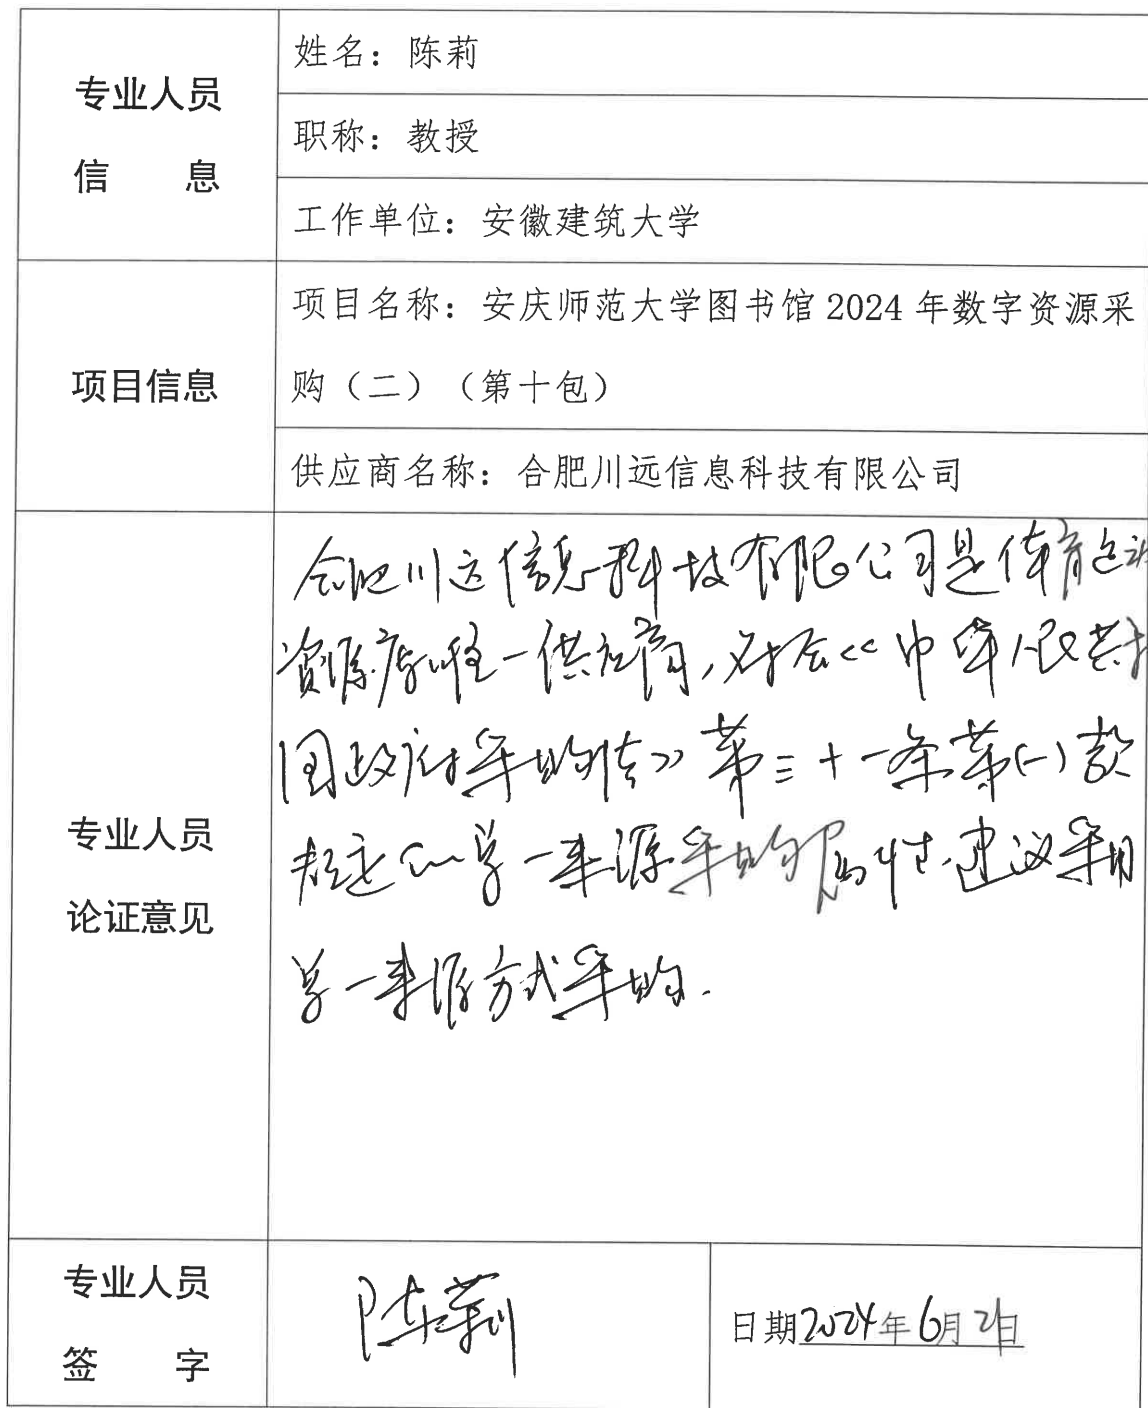 专业人员
信 息
姓名：陈莉
职称：教授
工作单位：安徽建筑大学
项目信息
项目名称：安庆师范大学图书馆 2024 年数字资源采
购（二）（第十包）
供应商名称：合肥川远信息科技有限公司
专业人员
论证意见
合肥川远信息科技有限公司是体育
资源库唯一供应商,符合《中华人民共和
国政府采购法》第三十一条第(一)款
规定的单一来源采购属性,建议采用
单一来源方式采购.
专业人员
签 字
陈莉
日期2024年6月2日